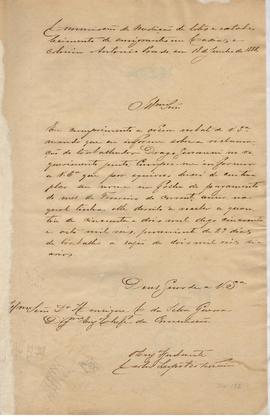 Commissão de Medição de lotes e estabele-
cimento de immigrantes em
Colonia Antonio Prado, em 11 de Junho de 1888.
Illmo Snr
Em cumprimento a ordem verbal de V. Sa
mando que eu informe sobre a reclama-
ção do trabalhador
querimento junto cumpre-me informar
a V. Sa que por equivoco deixei de contem-
plar seu nome na folha de pagamento
do mez de Fevereiro do corrente anno na
qual tinha elle direito a receber a quan-
tia de cincoenta e dois mil digo cincoenta
e oito mil reis, proveniente de 29 dias
de trabalho a rasão de dois mil reis di-
arios.
Deus Guarde a V. Sa
Illmo Snr Dr Henrique C. da Silva
D. Engo Chefe da Commissão
O Engo Ajudante